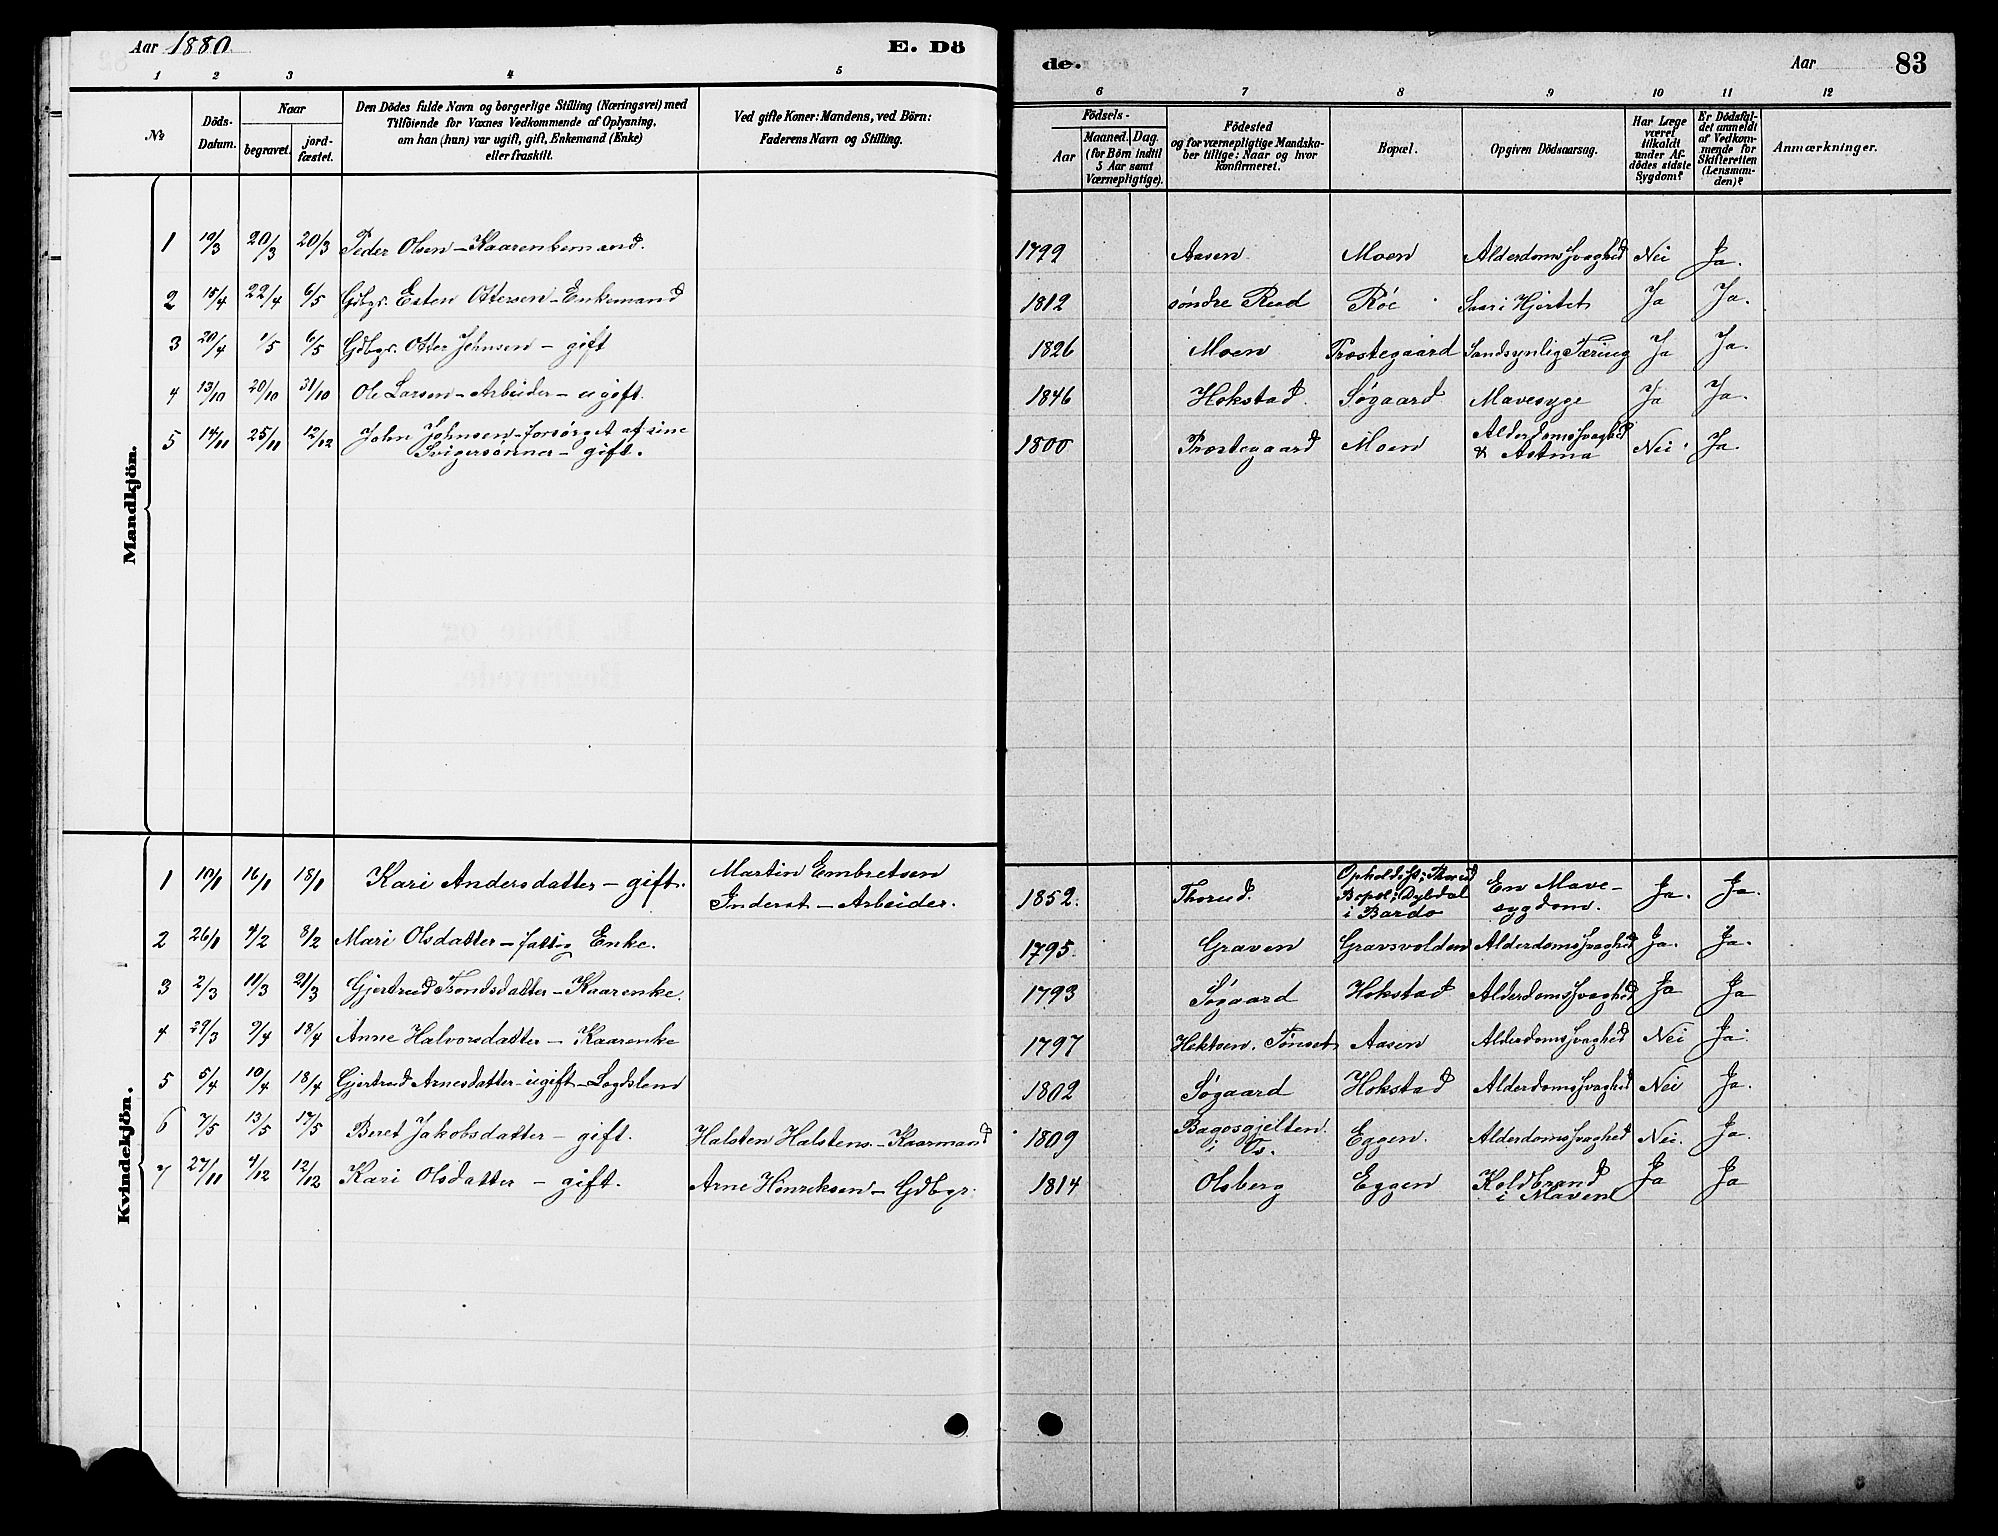 Aar 1880. E. Dö de. Aar 83
1 2 3 4 5 6 7 8 9 10 11 12
№
Döds-Datum.
Naar
begravet.
jord-fæstet.
Den Dödes fulde Navn og borgerlige Stilling (Næringsvei) med
Tilföiende for Voxnes Vedkommende af Oplysning,
om han (hun) var ugift, gift, Enkemand (Enke)
eller fraskilt.
Ved gifte Koner: Mandens, ved Börn:
Faderens Navn og Stilling.
Födsels-
Aar
Maaned. Dag.
(for Börn indtil
5 Aar samt
Værnepligtige).
Födested
og for værnepligtige Mandska-
ber tillige: Naar og hvor
konfirmeret.
Bopæl.
Opgiven Dödsaarsag.
Har Læge
været
tilkaldt
under Af-
dödes sidste
Sygdom?
Er Dödsfal-
det anmeldt
af Vedkom-
mende for
Skifteretten
(Lensman-
den)?
Anmærkninger.
Mandkjön.
1 19/3 20/3 20/3 Peder Olsen – Kaarenkemand. 1799 Aasen Moen Alderdomssvaghed Nei Ja.
2 15/4 22/4 6/5 Gdbgr. Esten Ottersen – Enkemand 1812 søndre Rud Røe Saar i Hjertet Ja Ja.
3 20/4 1/5 6/5 Gdbgr. Otter Johnsen – gift 1826 Moen Prostegaard Sandsynlig Tæring Ja Ja.
4 13/10 20/10 31/10 Ole Larsen – Arbeider – ugift. 1846 Hokstad Søgaard Mavesyge Ja Ja.
5 14/11 25/11 12/12 John Johnsen – forsørget af sine
Svigersønner – gift. 1800 Prostegaard Moen Alderdomssvaghed
& Astma Nei Ja.
Kvindekjön.
1 10/1 16/1 18/1 Kari Andersdatter – gift. Martin Embretsen
Inderst – Arbeider. 1852. Thorud. Opholdsst: Thorud
Bopel: Dybdal
i Bardo En Mave-
sygdom. Ja. Ja.
2 26/1 4/2 8/2 Mari Olsdatter – fattig Enke. 1795. Graven Gravsvolden Alderdomssvaghed Ja. Ja.
3 2/3 11/3 21/3 Gjertrud Trondsdatter – Kaarenke. 1793 Søgaard Hokstad Alderdomssvaghed Ja Ja
4 29/3 9/4 18/4 Anne Halvorsdatter – Kaarenke 1797 Hektoen. Tønset Aasen Alderdomssvaghed Nei Ja.
5 5/4 10/4 18/4 Gjertrud Arnesdatter – ugift – Logdslem 1802 Søgaard Hokstad Alderdomssvaghed Nei Ja.
6 7/5 13/5 17/5 Beret Jakobsdatter – gift. Halsten Halstens. – Kaarmand 1809 Bagosgjelten
i Os. Eggen. Alderdomssvaghed Nei. Ja.
7 27/11 4/12 12/12 Kari Olsdatter – gift. Arne Henriksen – Gdbgr. 1814 Olsberg Eggen Koldbrand
i Maven Ja Ja